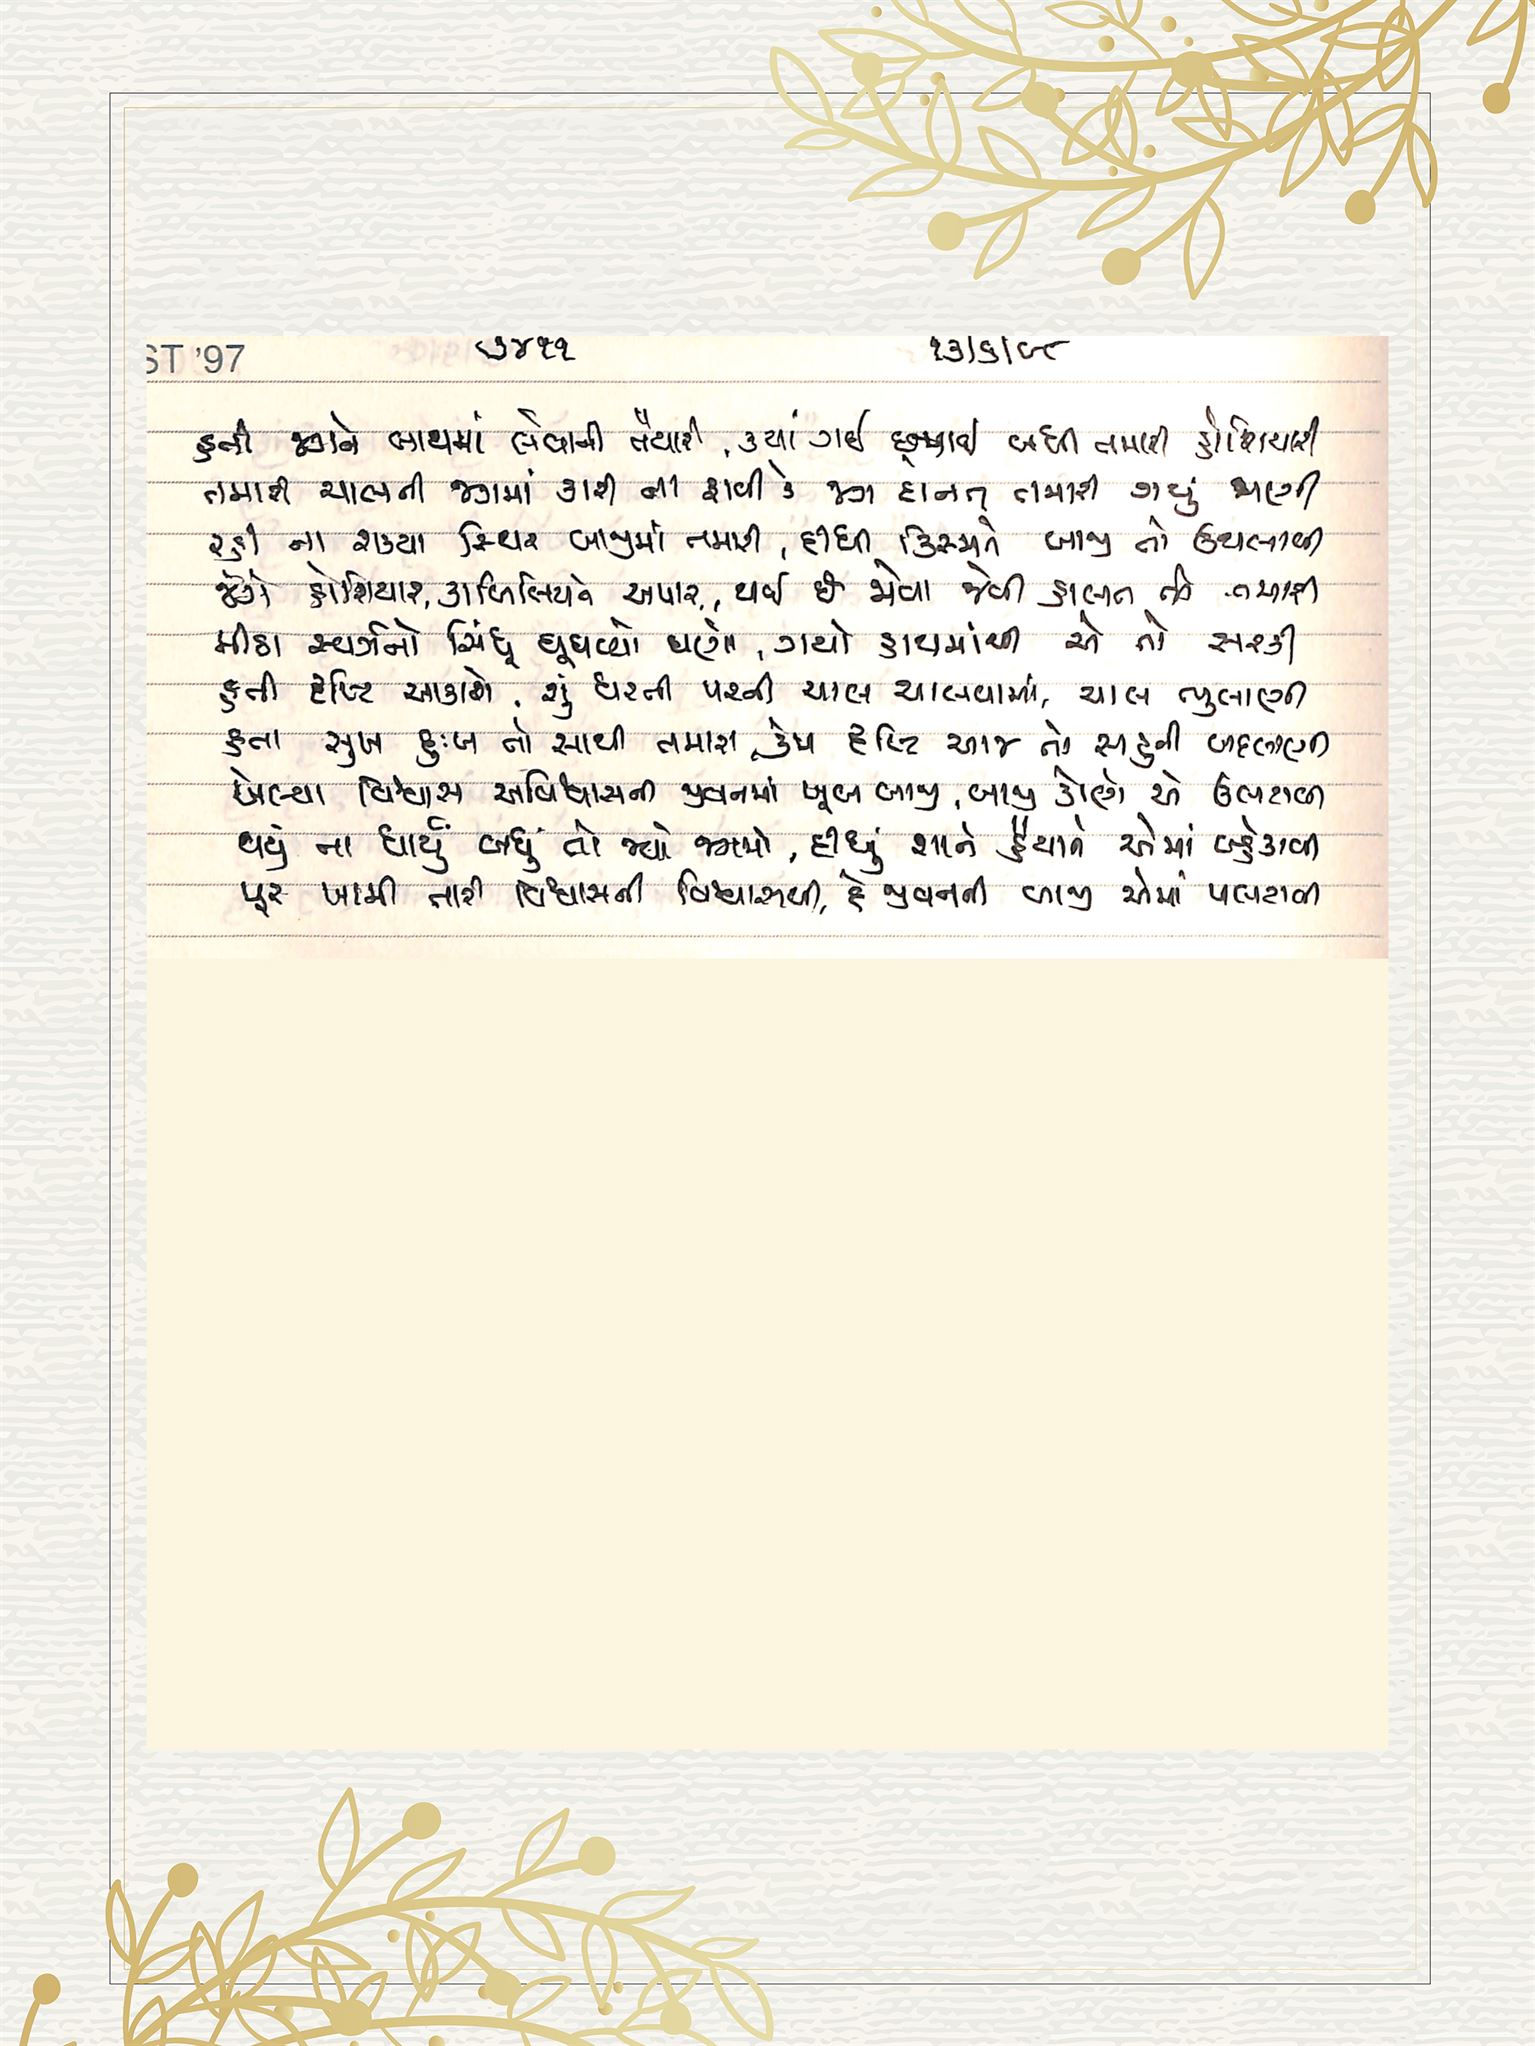 ST '97 ૭૪૧૧ ૧૩/૬/૯૮
હતી જગને બાથમાં લેવાની તૈયારી, ક્યાં ગઈ છુપાઈ બધી તમારી હોશિયારી
તમારી ચાલની જગમાં કારી ના ફાવી કે જગ દાનત તમારી ગયું જાણી
રહી ના શક્યા સ્થિર બાજીમાં તમારી, દીધી કિસ્મતે બાજી તો ઉથલાવી
હોશિયાર, કાબિલિયત અપાર, થઈ છે જોવા જેવી હાલત તો તમારી
મીઠા સ્વપ્નનો સિંધુ ઘૂઘવ્યો ઘણો, ગયો હાથમાંથી એ તો સરકી
હતી દૃષ્ટિ આકાશે, શું ઘરની પરની ચાલ ચાલવામાં, ચાલ ભુલાણી
હતા સુખ દુઃખ નો સાથી તમારા, કેમ દૃષ્ટિ આજ તો સહુની બદલાણી
ખેલ્યા વિશ્વાસ અવિશ્વાસની જીવનમાં ખૂબ બાજી, બાજી કોણે એ ઉલટાવી
થયું ના ધાર્યું બધું તો જ્યાં જગમાં, દીધું શાને હૈયાને એમાં બહેકાવી
પૂર ખામી તારી વિશ્વાસની વિશ્વાસથી, દે જીવનની બાજી એમાં પલટાવી